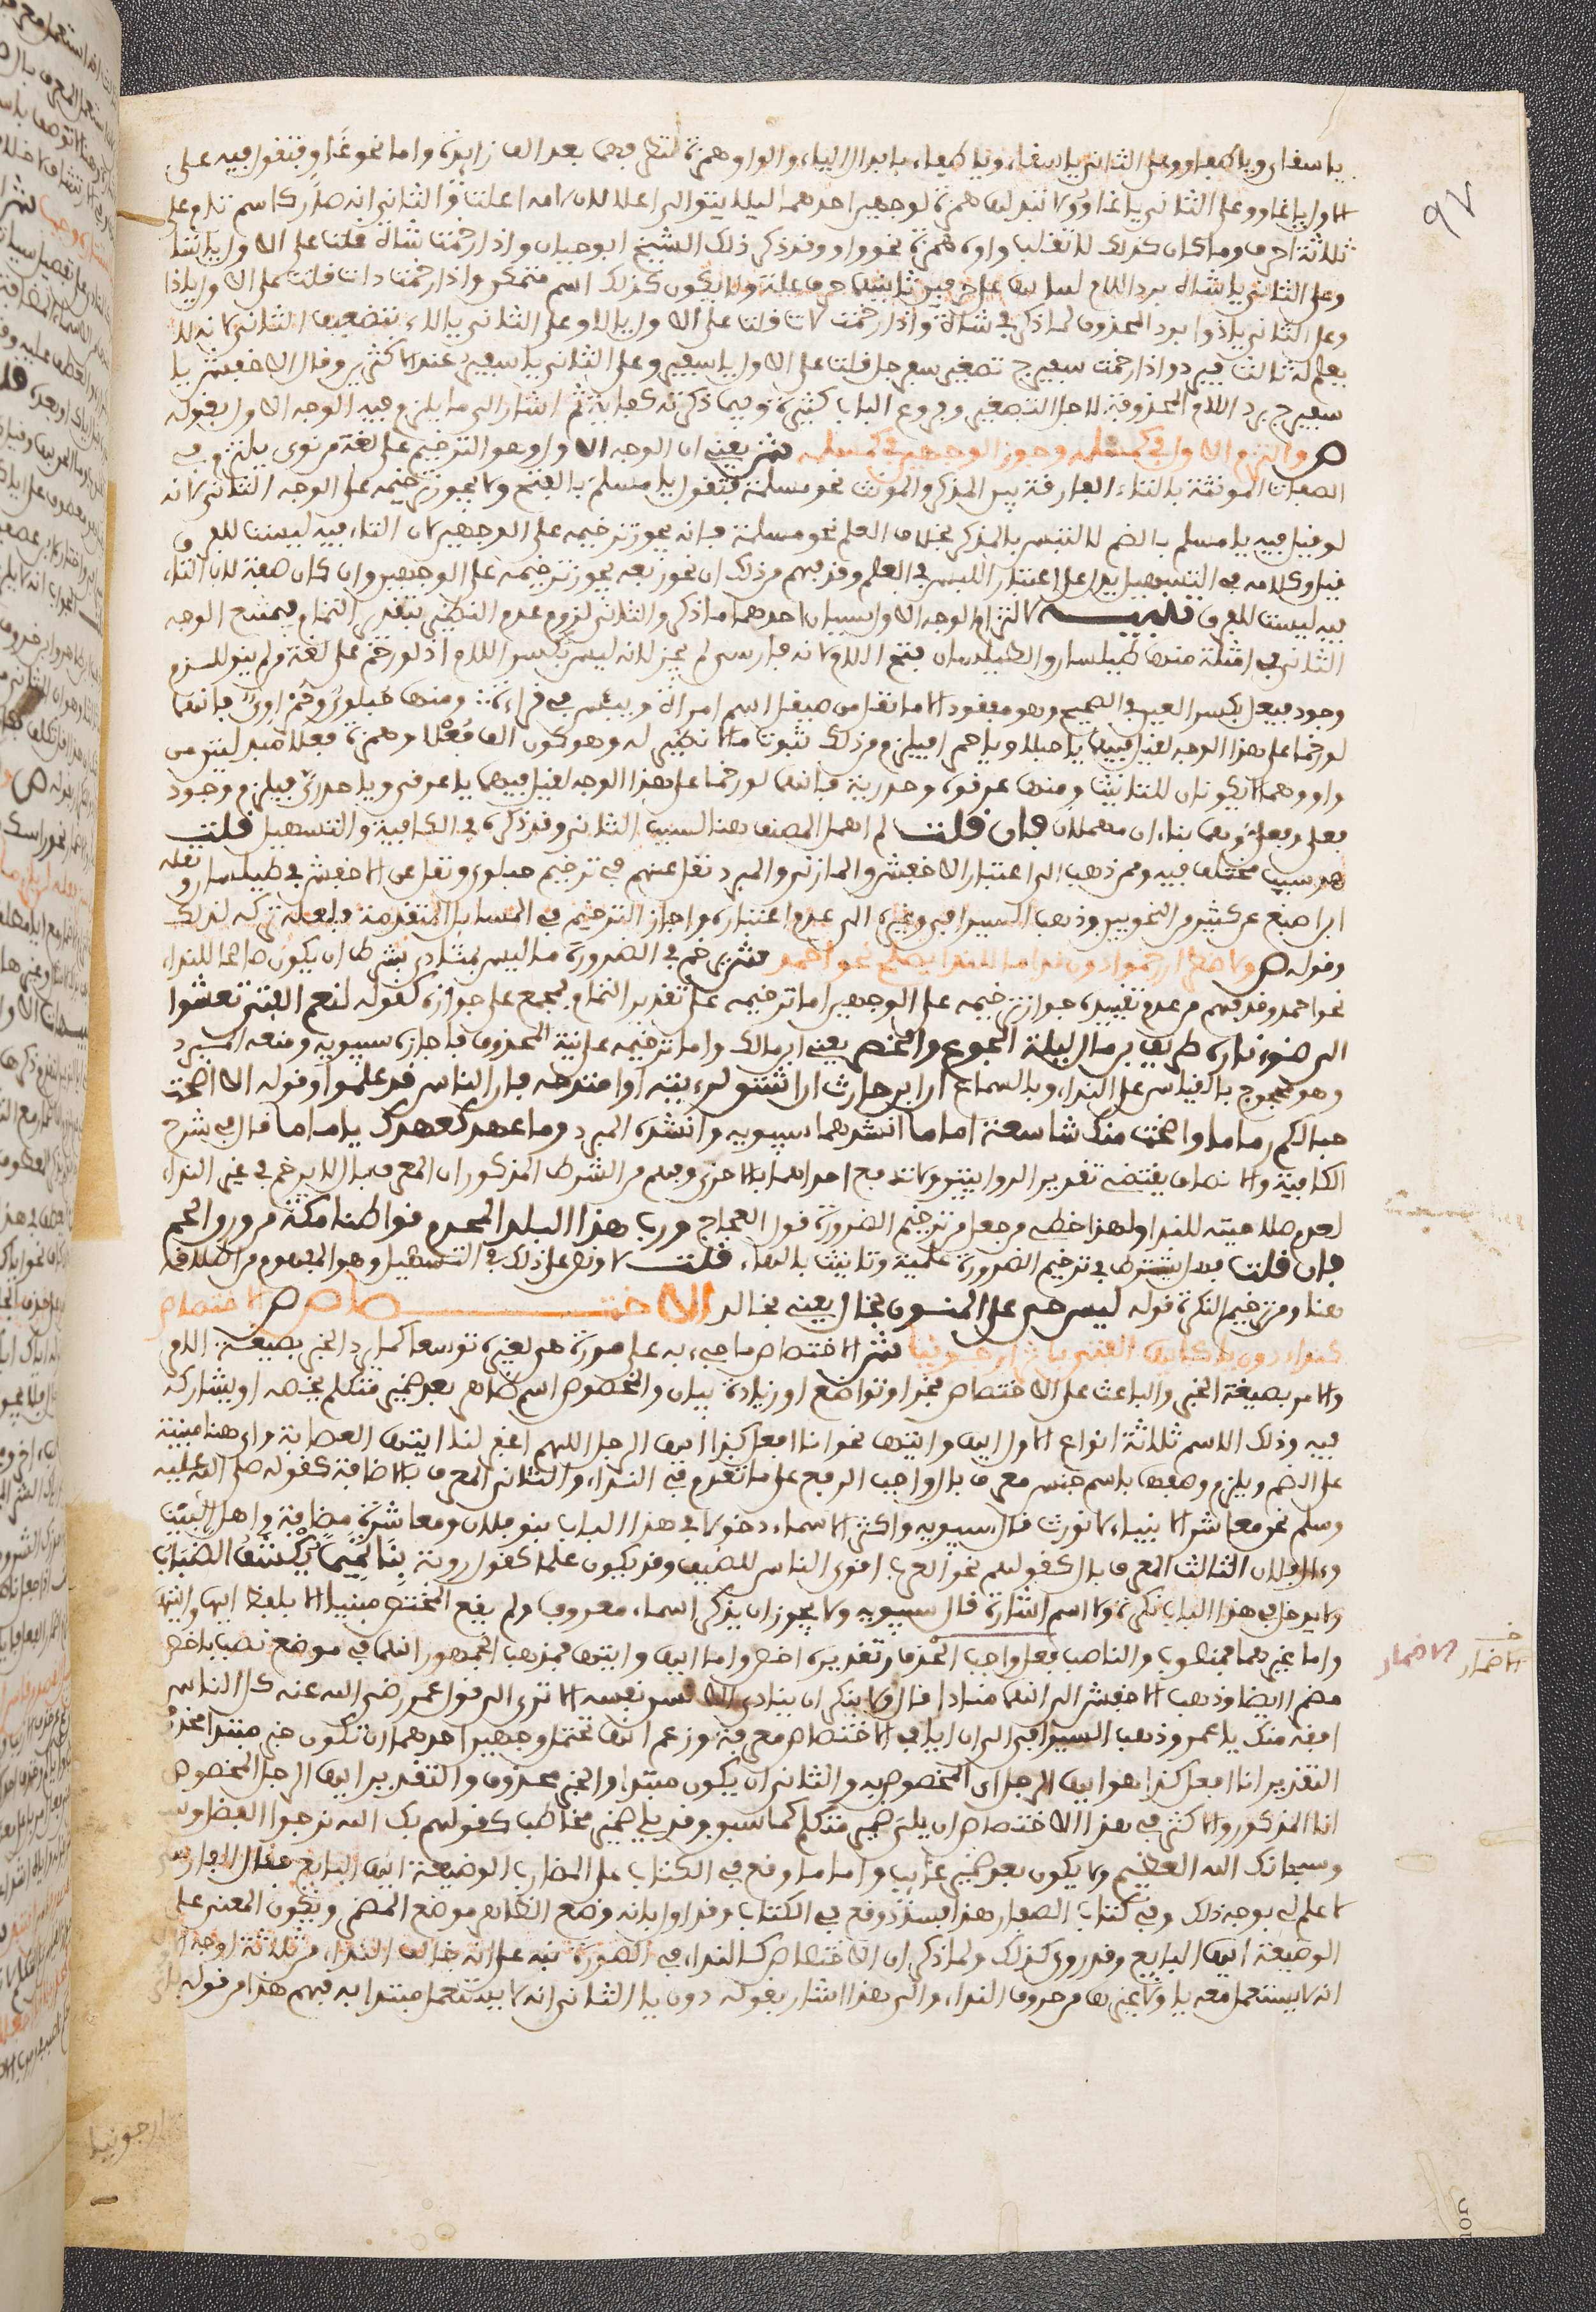 يا سقاى ويا طفاو وعلى الثانى يا سقاء ويا طفاء بابدال الياء والواو همزة لتطرفهما بعد الف زايدة واما نحو غاو فتقول فيه على
الاول يا غاو وعلى الثانى يا غاو ولا تبدلها همزة لوجهين احدهما ليلا يتوالى اعلالان لان لامه اعلت والثانى انه صار كاسم تام على
ثلاثة احرف وما كان كذلك لا تقلب واوه همزة نحو واو وقد ذكر ذلك الشيخ ابو حيان واذا رخمت شاة قلت على الاول يا شا
وعلى الثانى يا شاه برد اللام ليلا يبقى على حرفين ثانيهما حرف علة ولا يكون كذلك اسم متمكن واذا رخمت ذات قلت على الاول يا ذا
وعلى الثانى يا ذوا برد المحذوف لما ذكر فى شاة واذا رخمت لات قلت على الاول يا لا وعلى الثانى يا لاء بتضعيف الثانى لانه لا
يعلم له ثالث فيرد واذا رخمت سفيرج تصغير سفرجل قلت على الاول يا سفير وعلى الثانى يا سفير عند الاكثرين وقال الاخفش يا
سفيرج برد اللام المحذوفة لاجل التصغير وفروع الباب كثيرة وفيما ذكرته كفاية ثم اشار الى ما يلزم فيه الوجه الاول بقوله
ص والتزم الاول فى كمسلمه وجوز الوجهين فى كمسلمه ش يعنى ان الوجه الاول وهو الترخيم على لغة من نوى يلتزم فى
الصفات المونثة بالتاء الفارقة بين المذكر والمونث نحو مسلمة فتقول يا مسلم بالفتح ولا يجوز ترخيمه على الوجه الثانى لانه
لو قيل فيه يا مسلم بالضم لالتبس بالمذكر بخلاف العلم نحو مسلمة فانه يجوز ترخيمه على الوجهين لان التاء فيه ليست للفرق
قيل وكلامه فى التسهيل يدل على اعتبار اللبس فى العلم وقد فهم من ذلك ان نحو ربعة يجوز ترخيمه على الوجهين وان كان صفة لان التاء
فيه ليست للفرق تنبيه لالتزام الوجه الاول سببان احدهما ما ذكر والثانى لزوم عدم النظير بتقدير التمام فيمتنع الوجه
الثانى فى امثلة منها طيلسان والطيلسان بفتح اللام لانه قيل لم يجز لانه ليس بكسر اللام اذ لو رخم على لغة من لم ينو للزم
وجود فيعل بكسر العين فى الصحيح وهو مفقود الا ما نقل من صيقل اسم امراة وبيئس فى قراءة ومنها حبلوى وحمراوى فانهما
لو رخما على هذا الوجه لقيل فيهما يا حبلا ويا حمرا فيلزم من ذلك ثبوت ما لا نظير له وهو كون الف فعلى وهمزة فعلاء مبدلتين من
واو وهما لا يكونان للتانيث ومنها عرقوة وحدرية فانهما لو رخما على هذا الوجه لقيل فيهما يا عرقى ويا حدرى فيلزم وجود
فعلى وفعلى وهما بناءان مهملان فان قلت لم اهمل المصنف هنا السبب الثانى وقد ذكره فى الكافية والتسهيل قلت
هو سبب مختلف فيه وممن ذهب الى اعتباره الاخفش والمازنى والمبرد نقل عنهم فى ترخيم حبلوى ونقل عن الاخفش فى طيلسان ونقله
ابن اصبع عن كثير من النحويين وذهب السيرافى وغيره الى عدم اعتباره واجاز الترخيم فى المسايل المتقدمة ولعله تركه لذلك
وقوله ص ولاضطرار رخموا دون ندا ما للندا يصلح نحو احمدا ش يرخم فى الضرورة ما ليس بمنادى بشرط ان يكون صالحا للنداء
نحو احمد وقد فهم من عدم تقييده جواز ترخيمه على الوجهين اما ترخيمه على تقدير التمام فمجمع على جوازه كقوله لنعم الفتى تعشوا
الى ضوء ناره طريف بن مال ليلة الجوع والخصر يعنى ابن مالك واما ترخيمه على نية المحذوف فاجازه سيبويه ومنعه المبرد
وهو محجوج بالقياس على النداء وبالسماع ان ابن حارث ان اشتق لرؤيته او امتدحه فان الناس قد علموا وقوله الا اضحت
حبالكم رماما واضحت منك شاسعة اماما انشدهما سيبويه وانشده المبرد وما عهد كعهدك يا اماما قال فى شرح
الكافية والانصاف يقتضى تقدير الروايتين ولا تدفع احداهما بالاخرى وفهم من الشرط المذكور ان المعرف بال لا يرخم فى غير النداء
لعدم صلاحيته للندا ولهذا خطى من جعل من ترخيم الضرورة قول العجاج ورب هذا البلد المحرم قواطنا مكة من ورق الحم
فان قلت فهل يشترط فى ترخيم الضرورة علمية وتانيث بالهاء قلت لا ونص على ذلك فى التسهيل وهو المفهوم من اطلاقه
هنا ومن ترخيم النكرة قوله ليس حى على المنون بخال يعنى بخالد الاختصاص ص الاختصاص
كنداء دون يا كايها الفتى باثر ارجونيا ش الاختصاص ما جىء به على صورة هى لغيره توسعا كما يرد الخبر بصيغة الامر
والامر بصيغة الخبر والباعث على الاختصاص فخر او تواضع او زيادة بيان والمخصوص اسم ظاهر بعد ضمير متكلم يخصه او يشاركه
فيه وذلك الاسم ثلاثة انواع الاول ايها وايتها نحو انا افعل كذا ايها الرجل اللهم اغفر لنا ايتها العصابة واى هنا مبنية
على الضم ويلزم وصفها باسم جنس معرف بال واجب الرفع على ما تقدم فى النداء والثانى المعرف بالاضافة كقوله صلى الله عليه
وسلم نحن معاشر الانبياء لا نورث قال سيبويه واكثر الاسماء دخولا فى هذا الباب بنو فلان ومعاشر مضافة واهل البيت
وءال فلان الثالث المعرف بال كقولهم نحن العرب اقرى الناس للضيف وقد يكون علما كقول روبة بنا تميما يكشف الضباب
ولا يدخل فى هذا الباب نكرة ولا اسم اشارة قال سيبويه ولا يجوز ان يذكر اسماء معروفا ولم يقع المختص مبنيا الا بلفظ ايها وايتها
واما غيرهما فمنصوب والناصب فعل واجب الحذف تقديره اخص واما ايها وايتها فمذهب الجمهور انهما فى موضع نصب باخص
مضمرا ايضا وذهب الاخفش الى انها منادى قال ولا ينكر ان ينادى الانسان نفسه الا ترى الى قول عمر رضى الله عنه كل الناس
افقه منك يا عمر وذهب السيرافى الى ان ايا فى الاختصاص معربة وزعم انها تحتمل وجهين احدهما ان تكون خبر مبتدا محذوف
التقدير انا افعل كذا هو ايها الرجل اى المخصوص به والثانى ان يكون مبتدا والخبر محذوف والتقدير ايها الرجل المخصوص
انا المذكور والاكثر فى هذا الاختصاص ان يلى ضمير متكلم كما سبق وقد يلى ضمير مخاطب كقولهم بك الله نرجوا الفضل
وسبحانك الله العظيم ولا يكون بعد ضمير غايب واما ما وقع فى الكتاب على المضارب الوضيعة ايها البايع فقال الفارسى
لا علم لى بوجه ذلك وفى كتاب الصفار هذا فساد وقع فى الكتاب وقد اول بانه وضع الظاهر موضع المضمر ويكون المعنى على
الوضيعة ايها البايع وقد روى كذلك ولما ذكر ان الاختصاص كالنداء فى الصورة نبه على انه خالف النداء من ثلاثة اوجه
انه لا يستعمل معه يا ولا غيرها من حروف النداء والى هذا اشار بقوله دون يا الثانى انه لا يستعمل مبتدا به فهم هذا من قوله
ارجونيا
الاضمار
الاضمار
97